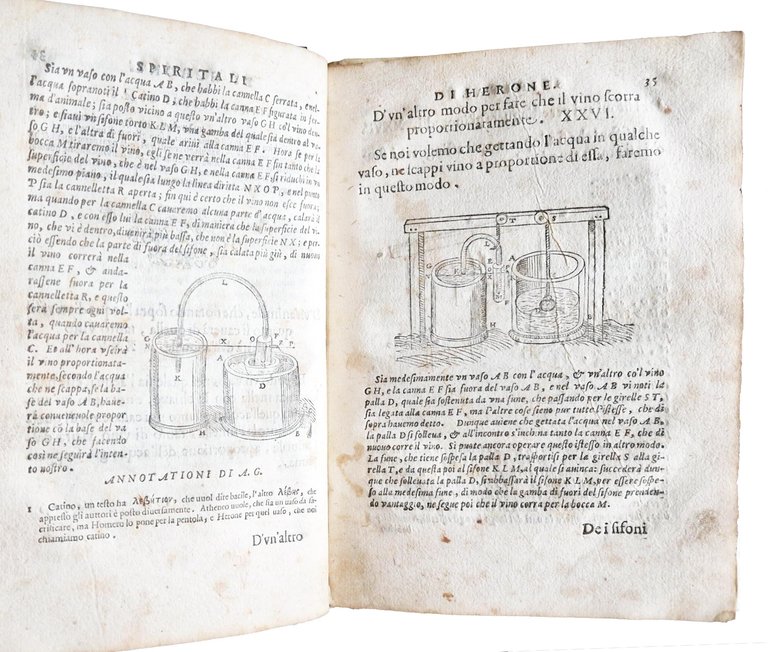 34
SPIRITALI
Sia vn vaso con l'acqua A B, che habbi la cannella C serrata, e nel-
l'acqua sopranoti il ¹ Catino D; che habbi la canna E F figurata in for-
ma d'animale; sia posto vicino a questo vn'altro vaso G H col vino den-
tro; e siaui vn sifone torto K L M, vna gamba del quale sia dentro al va-
so G H, e l'altra di fuori, quale ariui alla canna E F. Hora se per la
bocca M tiraremo il vino, egli se ne verrà nella canna E F sin tanto che la
superficie del vino, che è nel vaso G H, e nella canna E F, si riduchi in vn
medesimo piano, il quale sia lungo la linea diritta N X O P, e nel punto
P sia la cannelletta R aperta; fin qui è certo che il vino non esce fuora;
ma quando per la cannella C cauaremo alcuna parte d'acqua, calarà il
catino D, e con esso lui la canna E F; di maniera che la superficie del vi-
no, che vi è dentro, diuenirà più bassa, che non è la superficie N X; e per-
ciò essendo che la parte di fuora del sifone, sia calata più giù, di nuouo
il vino correrà nella
canna E F, & anda-
rassene fuora per la
cannelletta R, e questo
serà sempre ogni vol-
ta, quando cauaremo
l'acqua per la cannella
C. Et all'hora vscirà
il vino proportionata-
mente, secondo l'acqua
che ne scappa, se la ba-
se del vaso A B, hauerà
conueneuole proportio-
ne cō la base del va-
so G H, che facendo
così ne seguirà l'inten-
to nostro.
L
G N X O F P
K A D R
H E
ANNOTATIONI DI A. G.
1 Catino, vn testo ha Λεβήτιον, che vuol dire bacile, l'altro Λέβης, che
appresso gli auttori è posto diuersamente. Atheneo vuole, che sia un vaso da sa-
crificare, ma Homero lo pone per la pentola, e Herone per quei vasi, che noi
chiamiamo catino.
D'vn'altro
DI HERONE.
35
D'vn'altro modo per fare che il vino scorra
proportionatamente. XXVI.
Se noi volemo che gettando l'acqua in qualche
vaso, ne scappi vino a proportione di essa, faremo
in questo modo.
T S
L
G A
H B
D
Sia medesimamente vn vaso A B con l'acqua, & vn'altro co'l vino
G H, e la canna E F sia fuora del vaso A B, e nel vaso A B vi noti la
palla D, quale sia sostenuta da vna fune, che passando per le girelle S T,
sia legata alla canna E F, ma l'altre cose sieno pur tutte l'istesse, che di
sopra hauemo detto. Dunque auiene che gettata l'acqua nel vaso A B,
la palla D si solleua, & all'incontro s'inchina tanto la canna E F, che di
nuouo corre il vino. Si puote ancora operare questo istesso in altro modo.
La fune, che tiene sospesa la palla D, trasportisi per la girella S alla gi-
rella T, e da questa poi al sifone K L M, al quale si auinca: succederà dun-
que che solleuata la palla D, si abbassarà il sifone K L M, per essere sospe-
so alla medesima fune, di modo che la gamba di fuori del sifone prenden-
do vantaggio, ne segue poi che il vino corra per la bocca M.
De i sifoni